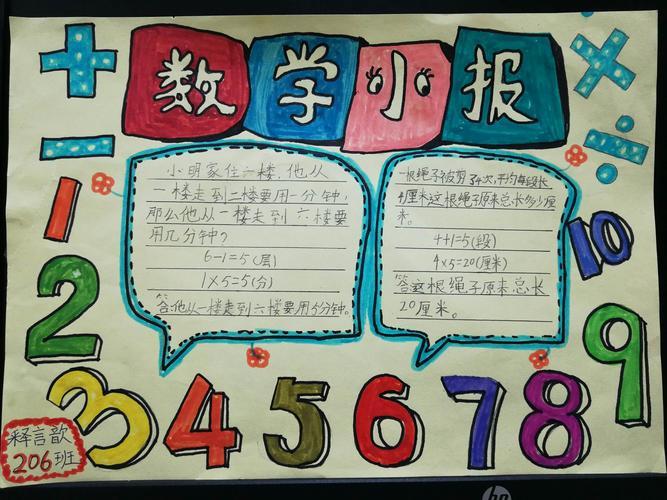 数学小报
小明家住六楼,他从
一楼走到二楼要用一分钟,
那么他从一楼走到六楼要
用几分钟?
6-1=5(层)
1×5=5(分)
答:他从一楼走到六楼要用5分钟。
一根绳子被剪了4次,平均每段长
4厘米这根绳子原来总长多少厘
米。
4+1=5(段)
4×5=20(厘米)
答这根绳子原来总长
20厘米。
+
-
×
÷
1
2
3
4
5
6
7
8
9
10
释言歆
206班
hp